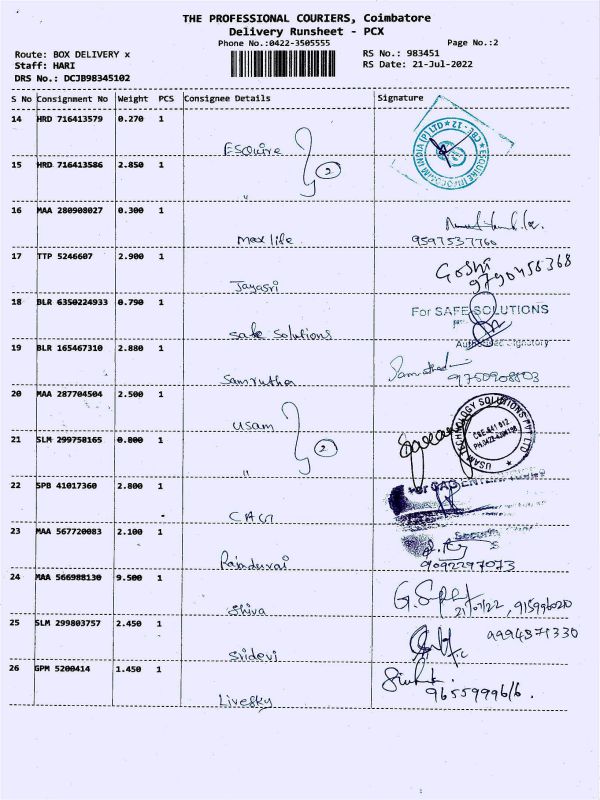 THE PROFESSIONAL COURIERS, Coimbatore
Delivery Runsheet - PCX
Phone No.:0422-3505555 Page No.:2
Route: BOX DELIVERY x RS No.: 983451
Staff: HARI RS Date: 21-Jul-2022
DRS No.: DCJB98345102
S No Consignment No Weight PCS Consignee Details Signature
14 HRD 716413579 0.270 1
ESquire
15 HRD 716413586 2.850 1
2
"
16 MAA 280908027 0.300 1
max life 9597537760
17 TTP 5246607 2.900 1
Jayasri Goshi 9790458368
18 BLR 6350224933 0.790 1
For SAFE SOLUTIONS
safe Solutions
Authorised Signatory
19 BLR 165467310 2.880 1
Samrutha 9750908803
20 MAA 287704504 2.500 1
usam
USAM TECHNOLOGY SOLUTIONS PVT LTD
21 SLM 299758165 0.800 1
2
"
22 SPB 41017360 2.800 1
CAGI
23 MAA 567720083 2.100 1
Rajadurai 9092297073
24 MAA 566988130 9.500 1
Shiva 21/07/22, 9159960210
25 SLM 299803757 2.450 1
Sridevi 9994871330
26 GPM 5200414 1.450 1
Livesky